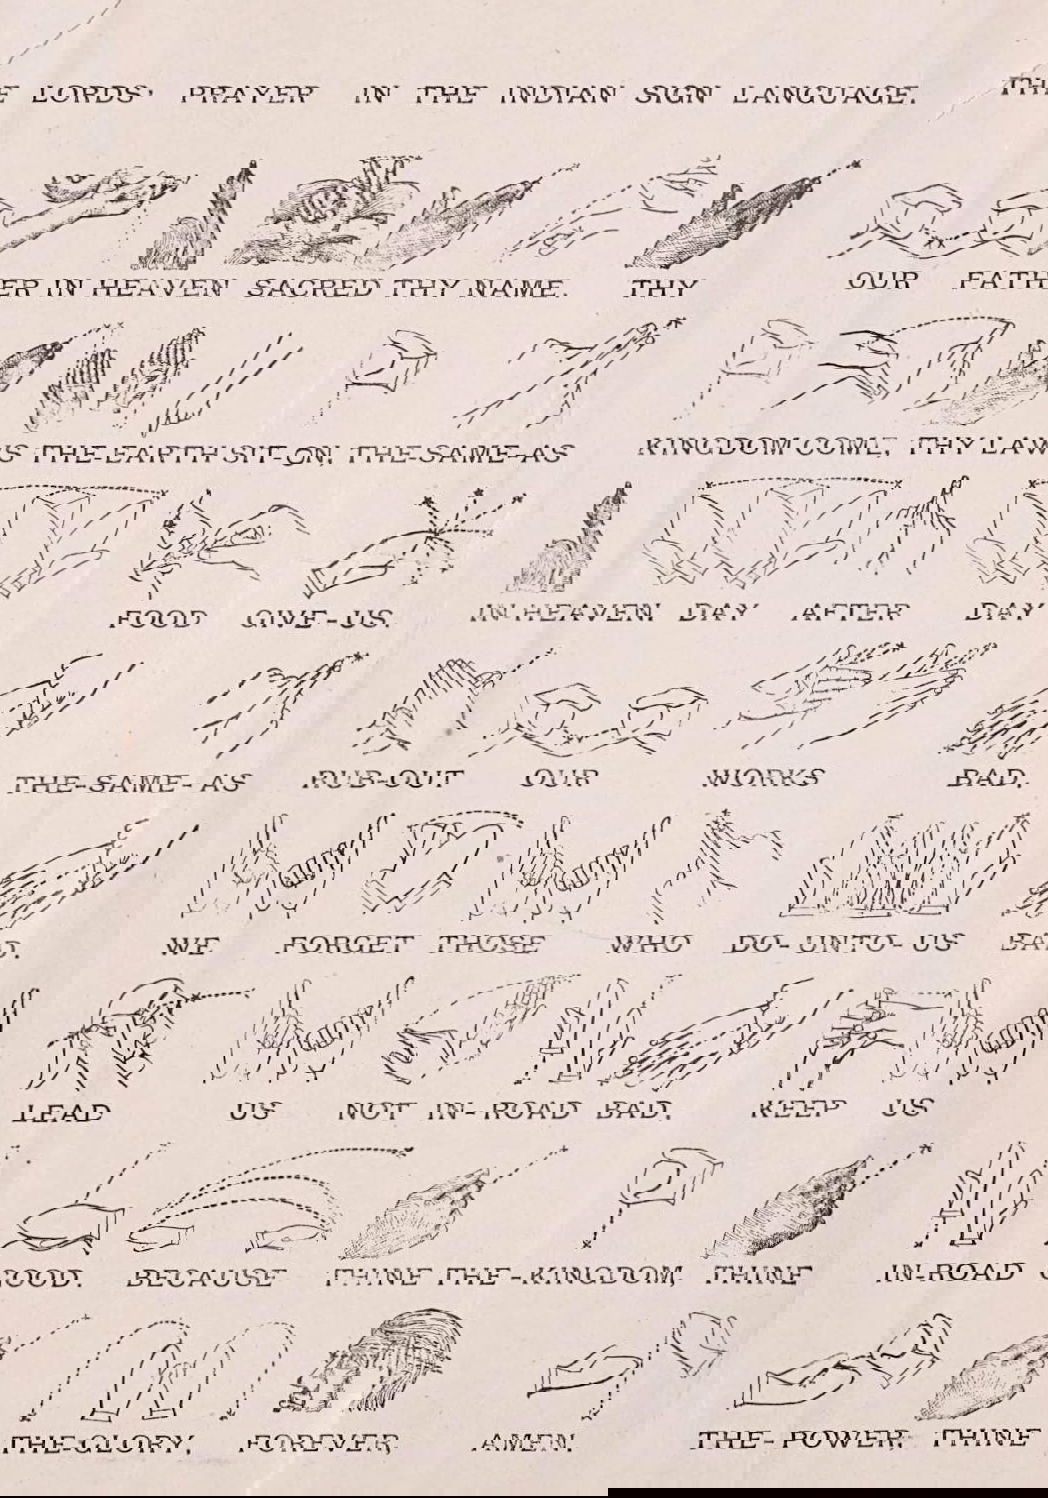 E LORDS' PRAYER IN THE INDIAN SIGN LANGUAGE. THE
ER IN HEAVEN SACRED THY NAME. THY OUR FATH
S THE-EARTH SIT-ON. THE-SAME-AS KINGDOM COME, THY LAW
FOOD GIVE-US. IN HEAVEN. DAY AFTER DAY
THE-SAME-AS RUB-OUT OUR WORKS BAD.
D. WE FORGET THOSE WHO DO-UNTO-US BA
LEAD US NOT IN-ROAD BAD. KEEP US
OOD. BECAUSE THINE THE-KINGDOM, THINE IN-ROAD
THE-GLORY. FOREVER AMEN. THE-POWER. THINE